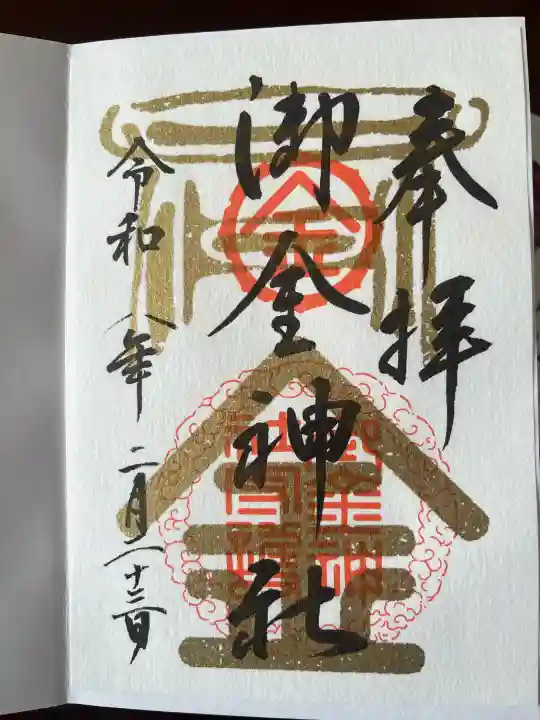 奉拝
御金神社
令和八年二月二十二日
金
金